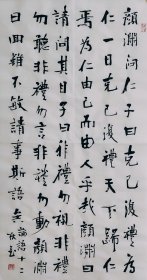 顏淵問仁子曰克己復禮為
仁一日克己復禮天下歸仁
焉為仁由己而由人乎哉顏淵曰
請問其目子曰非禮勿視非禮
勿聽非禮勿言非禮勿動顏淵
曰回雖不敏請事斯語矣 論語十二